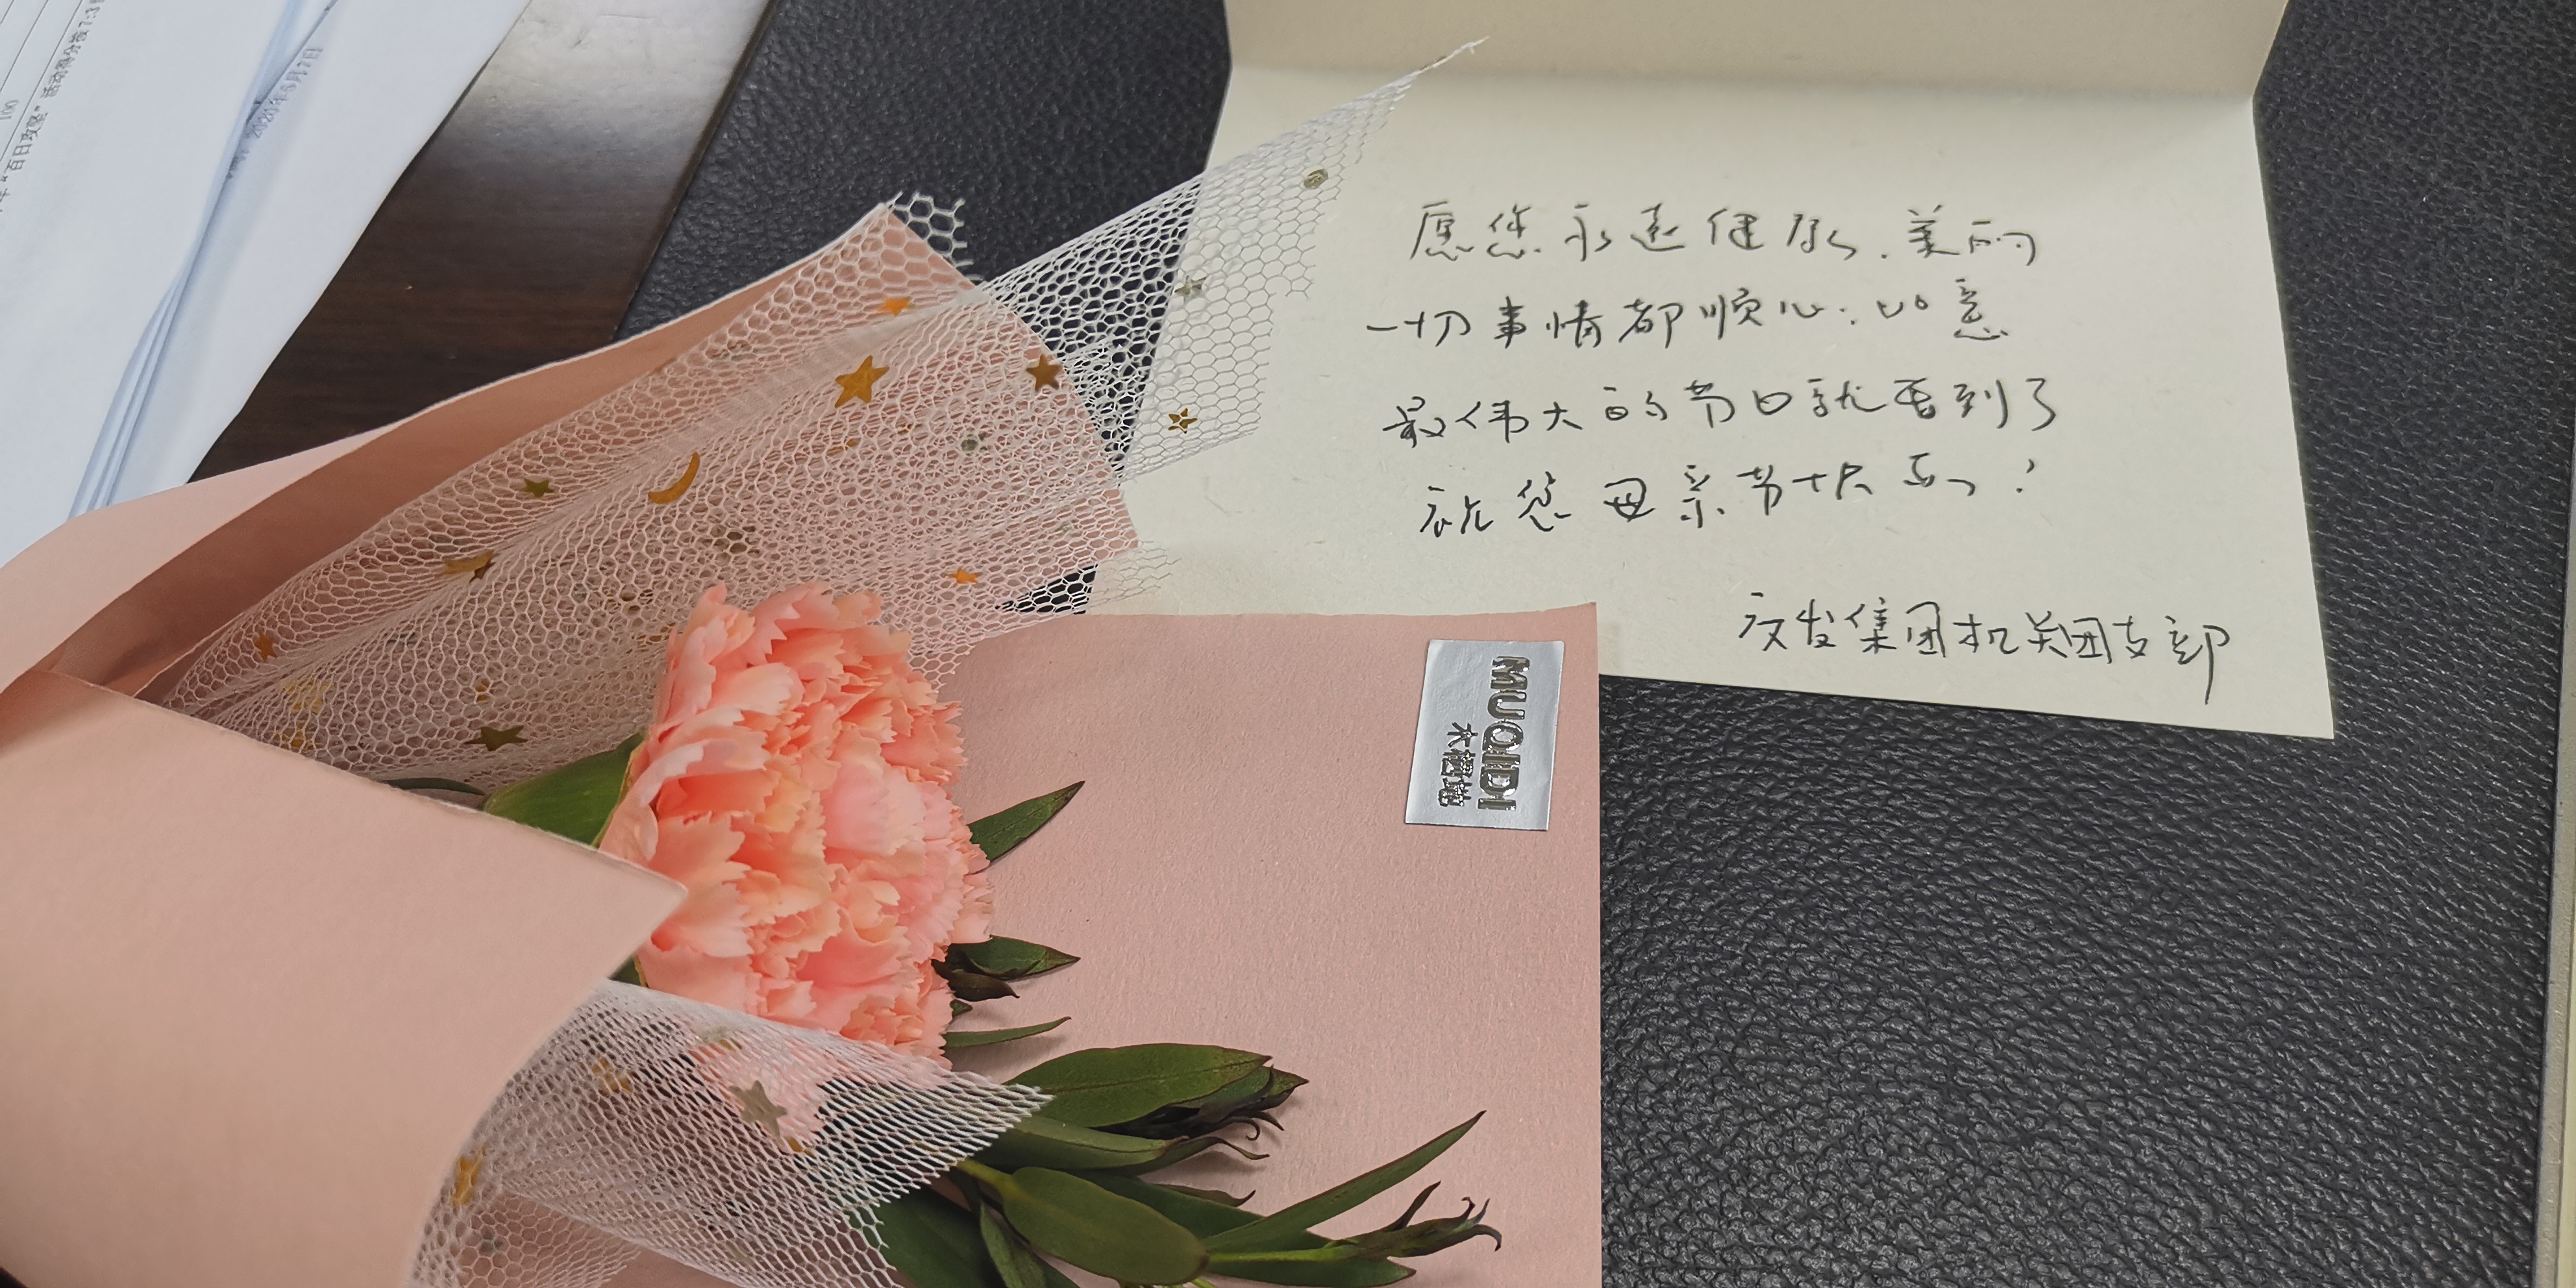 愿您永远健康、美丽
一切事情都顺心、如意
最伟大的节日就要到了
祝您母亲节快乐！
文发集团机关团支部
MUQIDI
木栖地
"百日攻坚"活动得分按7:3
100
2020年5月7日